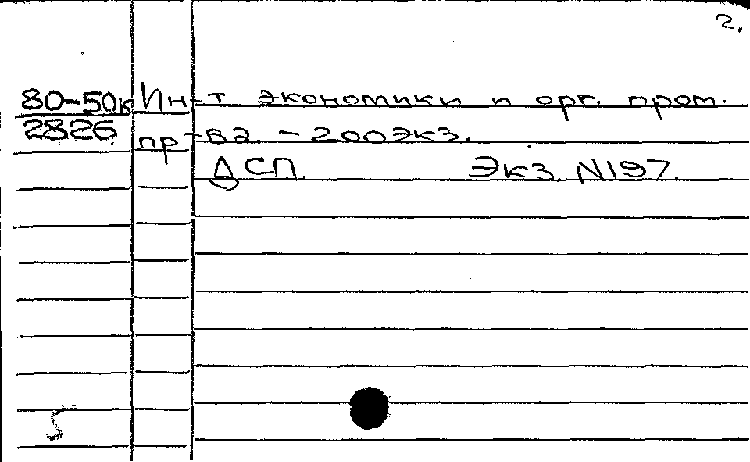 2.
80-50к Ин-т экономики и орг. пром.
2826 пр-ва. - 200экз.
ДСП. Экз. N197.
5